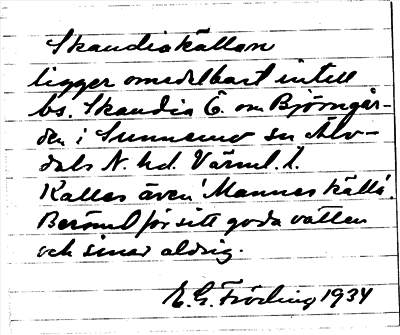 Skandiakällan
ligger omedelbart intill
bs. Skandia Ö. om Björngår-
den i Sunnemo sn Älv-
dals N. hd. Värml. l.
Kallas även "Mannes källa".
Berömd för sitt goda vatten
och sinar aldrig.
E. G. Fröding 1934